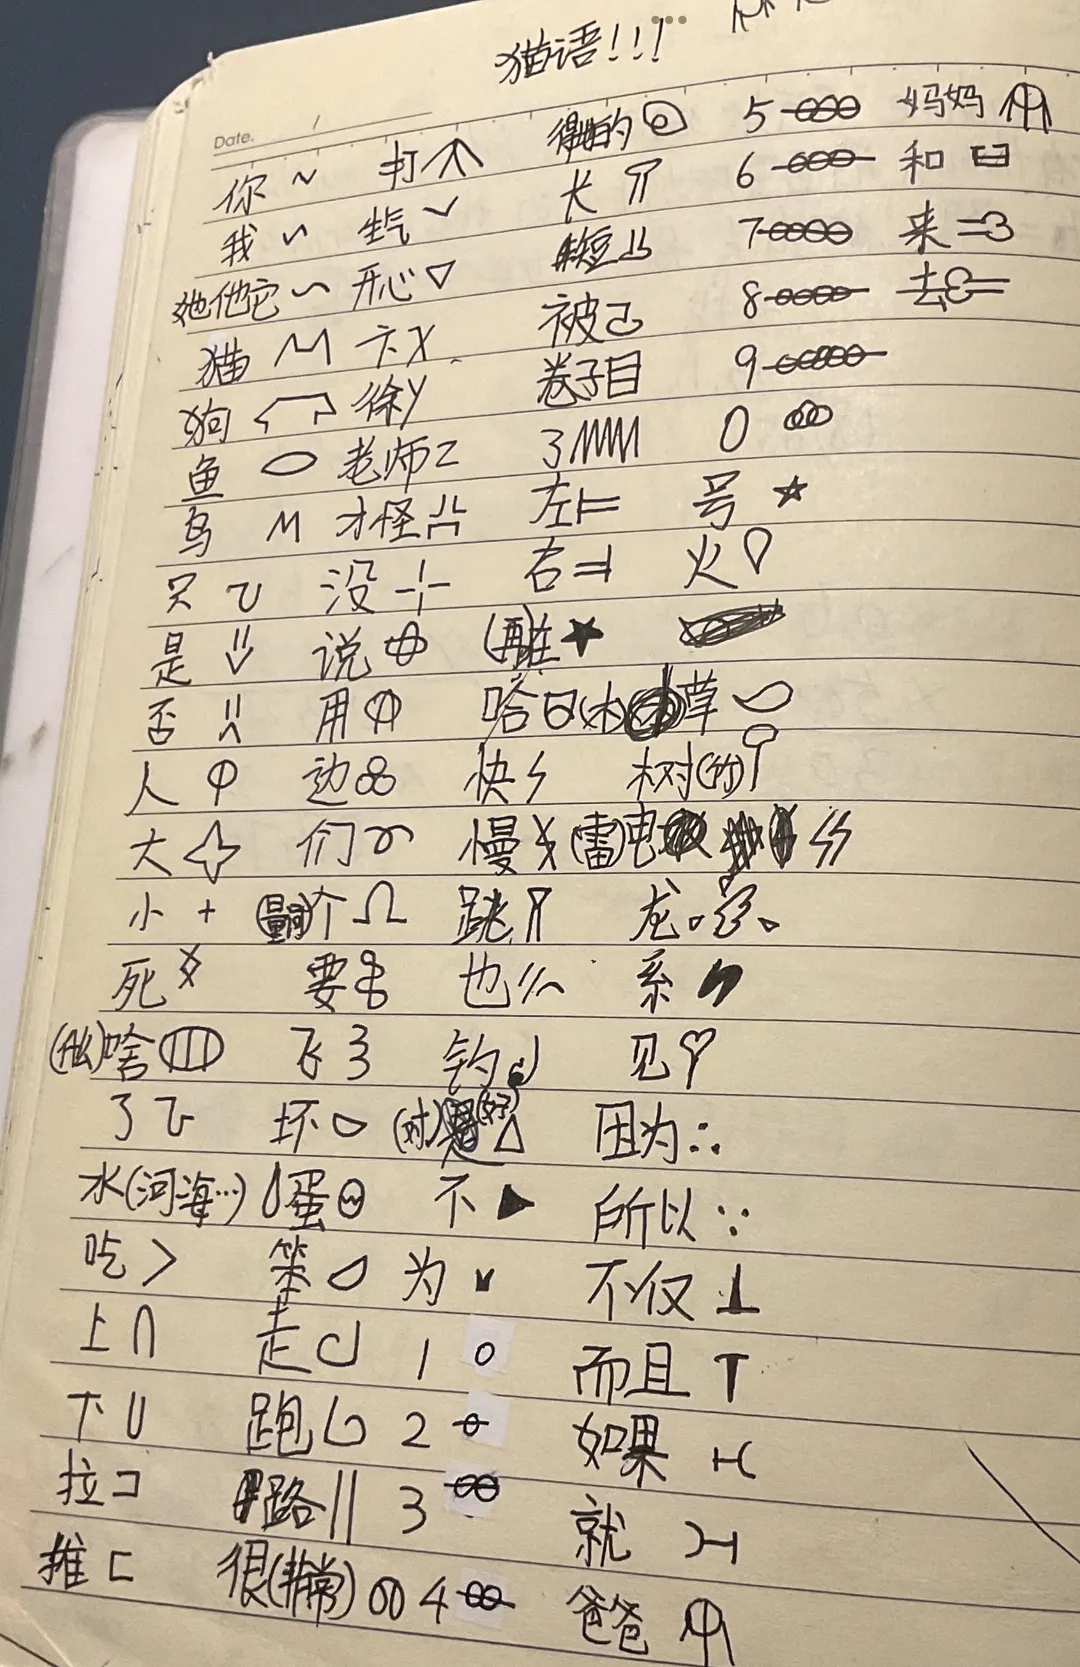 猫语!!!
Date.
你 打 得地的 5 妈妈
我 生气 长 6 和
她他它 开心 短 7 来
猫 卞 被 8 去
狗 徐 卷子 9
鱼 老师 3 0
鸟 才怪 左 号
只 没 右 火
是 说
否 用 哈 草
人 边 快 树(竹)
大 们 慢 (雷)电
小 (量词)个 跳 龙
死 要 也 系
(什么)啥 飞 钓 见
了 坏 (对) (好) 因为
水(河海…) 蛋 不 所以
吃 笨 为 不仅
上 走 1 而且
下 跑 2 如果
拉 路 3 就
推 很(非常) 4 爸爸